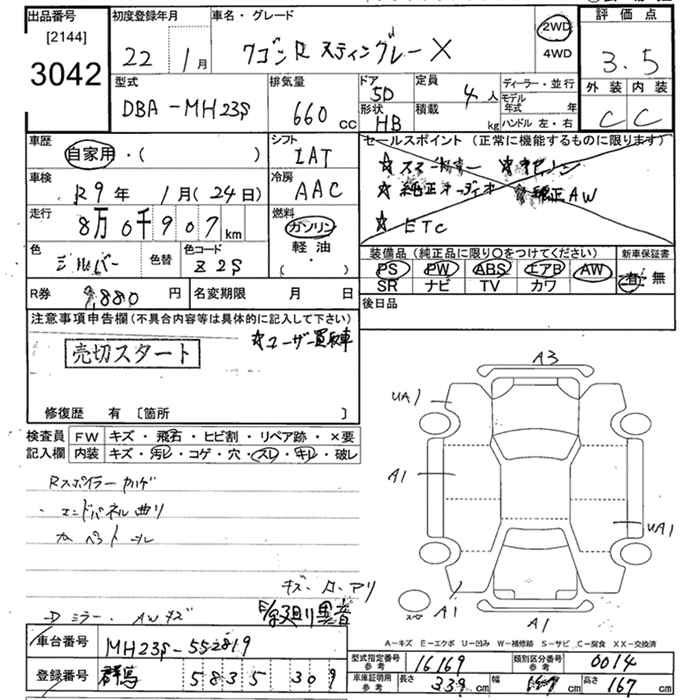 出品番号
[2144]
3042
初度登録年月
22 1月
車名・グレード
ワゴンR スティングレー X
2WD
4WD
評価点
3.5
外装 内装
C C
型式
DBA-MH23S
排気量
660 cc
ドア 5D
形状 HB
定員 4人
積載 kg
ディーラー・並行
モデル年式 年
ハンドル 左・右
車歴
自家用・( )
シフト
IAT
セールスポイント (正常に機能するものに限ります)
☆純正オーディオ ☆純正AW
☆ETC
車検
R9年 1月(24日)
冷房
AAC
走行
8万0千907km
燃料
ガソリン
軽油
( )
色
シルバー
色替
色コード
Z2S
装備品 (純正品に限り○をつけてください)
PS PW ABS エアB AW
SR ナビ TV カワ
新車保証書
有・無
R券 9,880円
名変期限 月 日
後日品
注意事項申告欄 (不具合内容等は具体的に記入して下さい)
☆ユーザー買取車
売切スタート
修復歴 有 [箇所 ]
検査員記入欄
FW キズ・飛石・ヒビ割・リペア跡・×要
内装 キズ・汚レ・コゲ・穴・スレ・キレ・破レ
Rスポイラー
エンドパネル曲り
キズ・凹・アリ
ミラー・AWキズ
A3
UA1
A1
UA1
A1
A1
スペアー
A-キズ E-エクボ U-凹み W-補修跡 S-サビ C-腐食 XX-交換済
車台番号 MH23S-552819
登録番号 群馬 583 5 309
型式指定番号 参考 16169
類別区分番号 参考 0014
車庫証明用 参考 長さ 339cm 幅 cm 高さ 167cm